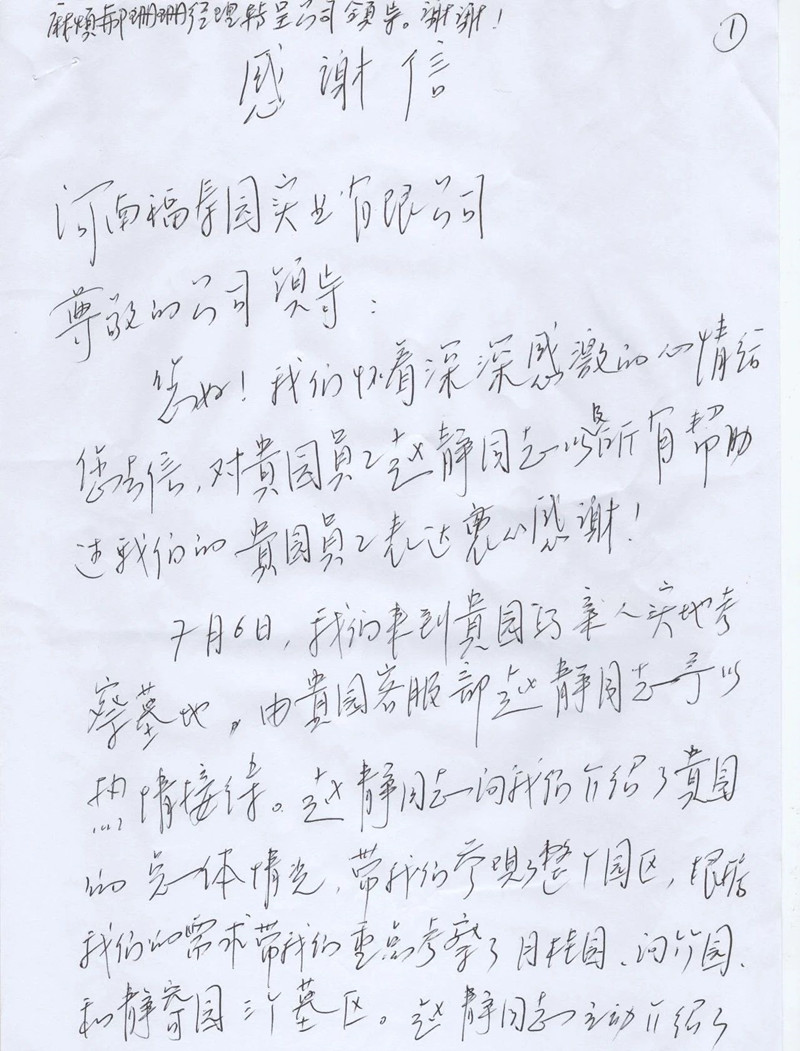 麻烦郝珊珊经理转呈公司领导。谢谢!
①
感谢信
河南福寿园实业有限公司
尊敬的公司领导:
您好!我们怀着深深感激的心情给
您去信,对贵园员工赵静同志以及所有帮助
过我们的贵园员工表达衷心感谢!
7月6日,我们来到贵园为亲人实地考
察墓地,由贵园客服部赵静同志予以
热情接待。赵静同志向我们介绍了贵园
的总体情况,带我们参观了整个园区,根据
我们的需求带我们重点考察了月桂园、问竹园、
和静寄园三个墓区。赵静同志主动介绍了